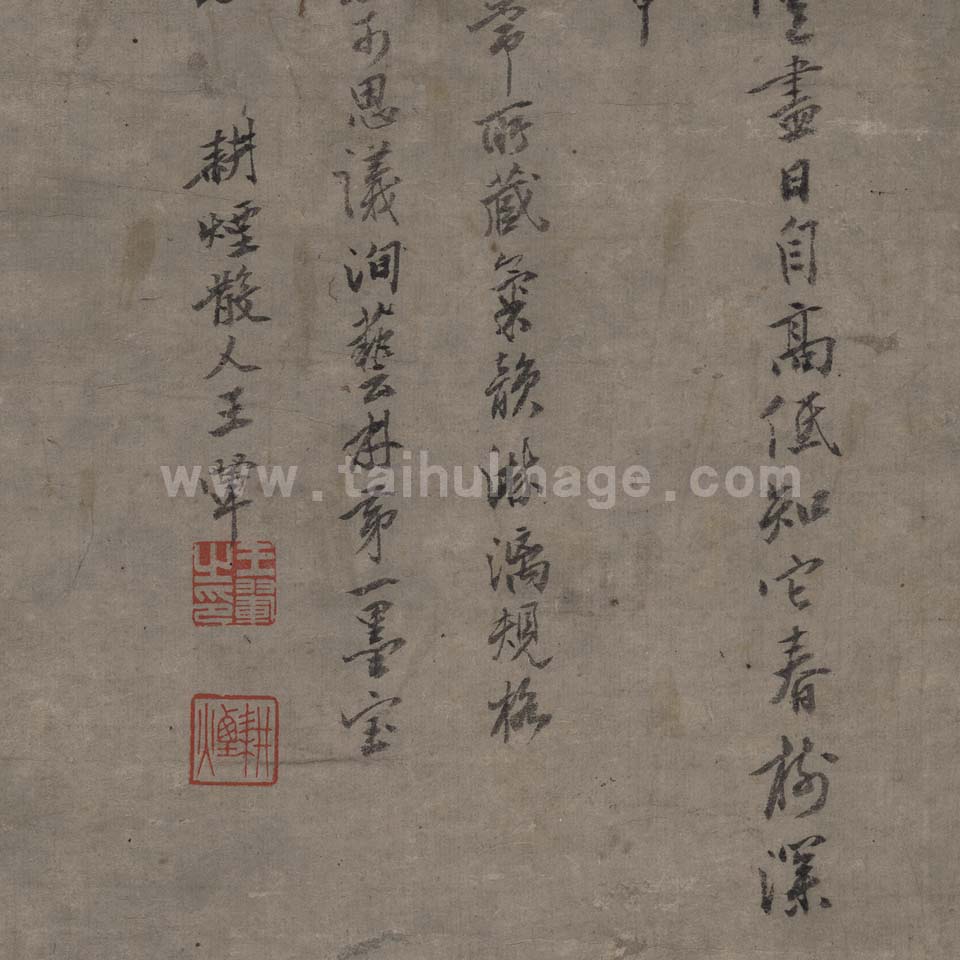 盡日自高低知它春樹深
常所藏氣韻淋漓規格
可思議洵藝林第一墨宝
耕煙散人王翬
王翬之印
耕煙
www.taihuImage.com